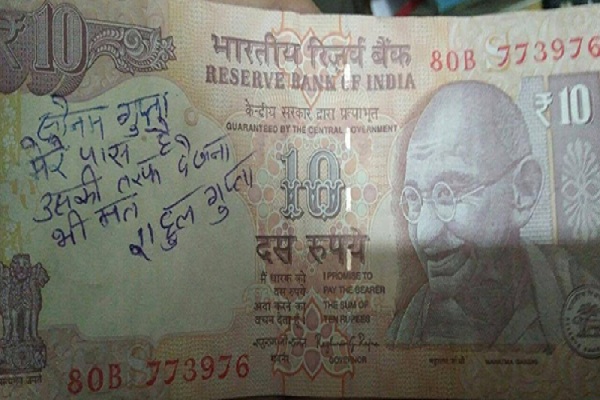 ₹10
भारतीय रिज़र्व बैंक
RESERVE BANK OF INDIA
80B 773976
केन्द्रीय सरकार द्वारा प्रत्याभूत
GUARANTEED BY THE CENTRAL GOVERNMENT
₹10
सोनम गुप्ता
मेरे पास है
उसकी तरफ देखना
भी मत
राहुल गुप्ता
10
दस रुपये
मैं धारक को
दस रुपये
अदा करने का
वचन देता हूँ
I PROMISE TO
PAY THE BEARER
THE SUM OF
TEN RUPEES
GOVERNOR
महात्मा गांधी
MAHATMA GANDHI
सत्यमेव जयते
80B 773976